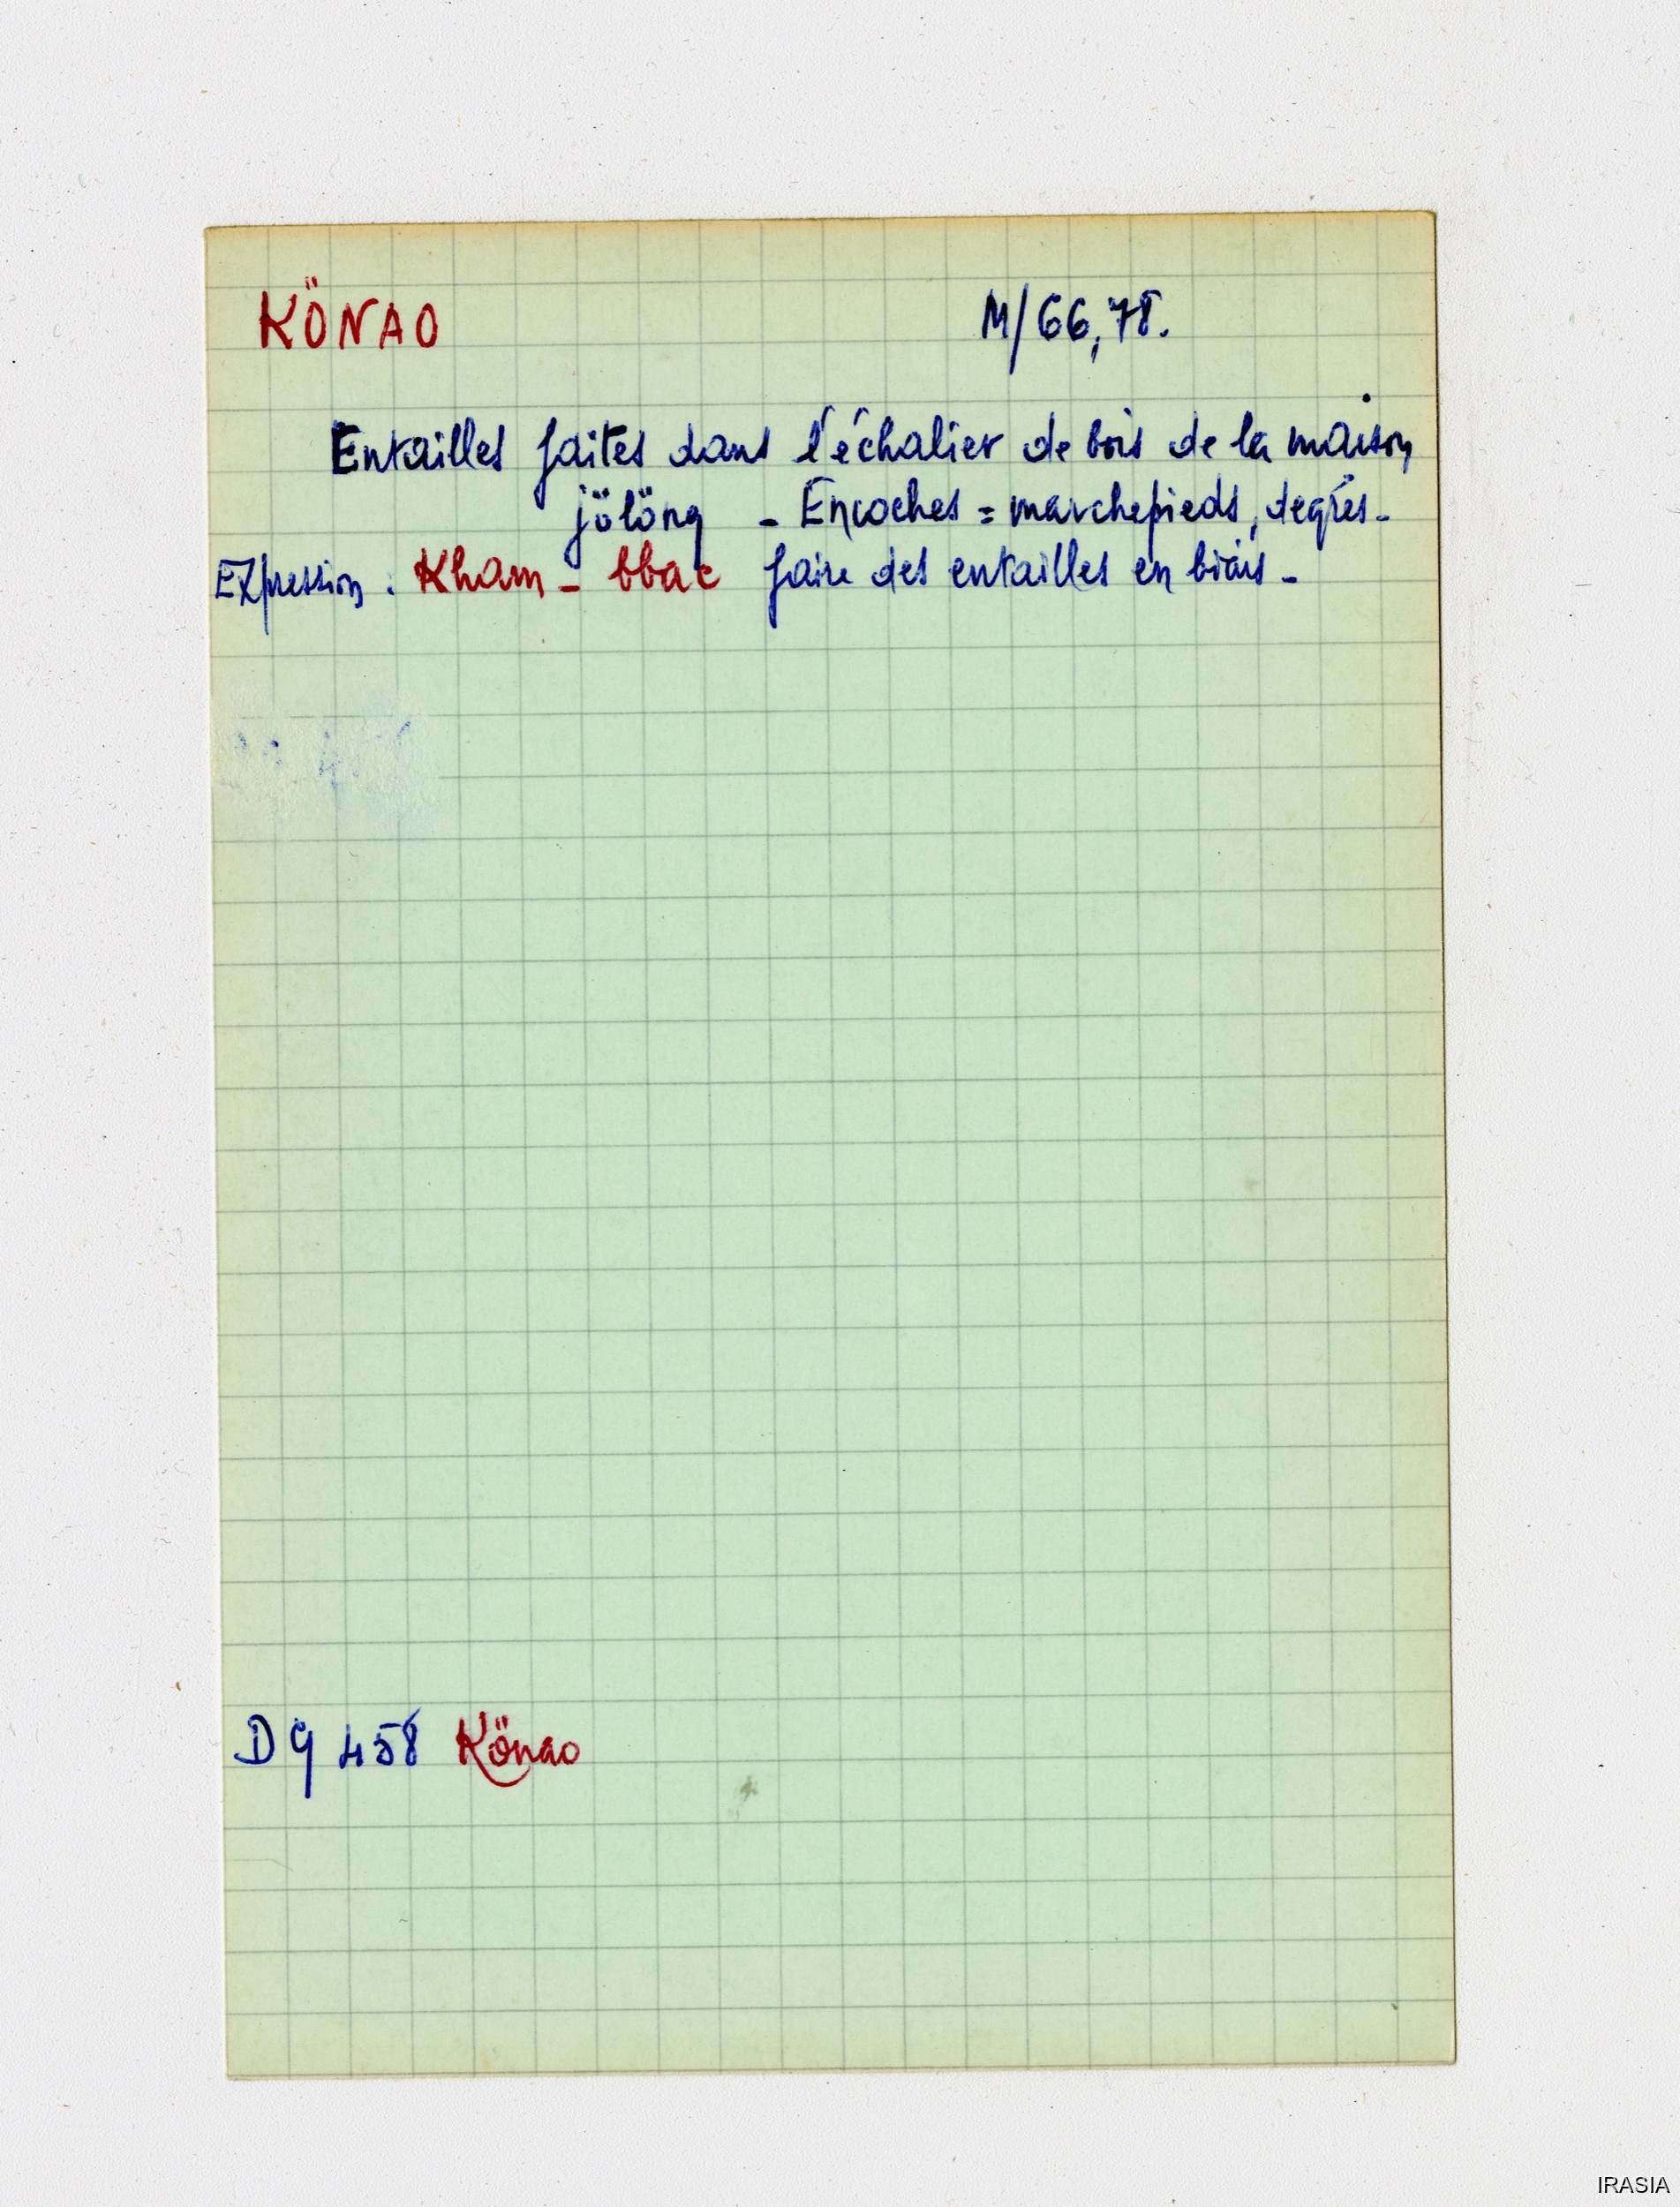 KÖNAO M/66,78.
Entailles faites dans l'échalier de bois de la maison
jölöng - Encoches = marchepieds, degrés -
Expression : Kham - bbac faire des entailles en biais -
D9 458 Könao
IRASIA